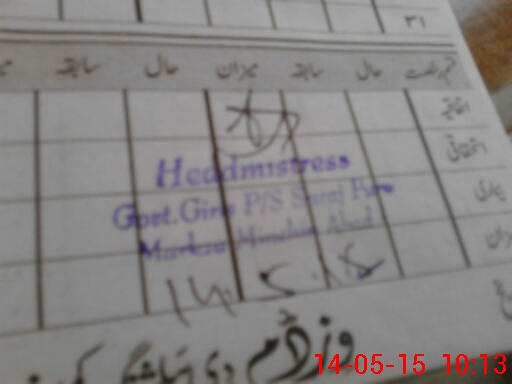 ۳۱
قسم رخصت حال سابقہ میزان حال سابقہ
اتفاقیہ
استحقاقی
بیماری
میزان
Headmistress
Govt. Girls P/S Suraj Pura
Markaz Minchin Abad
14.5.15
وزڈم
14-05-15 10:13